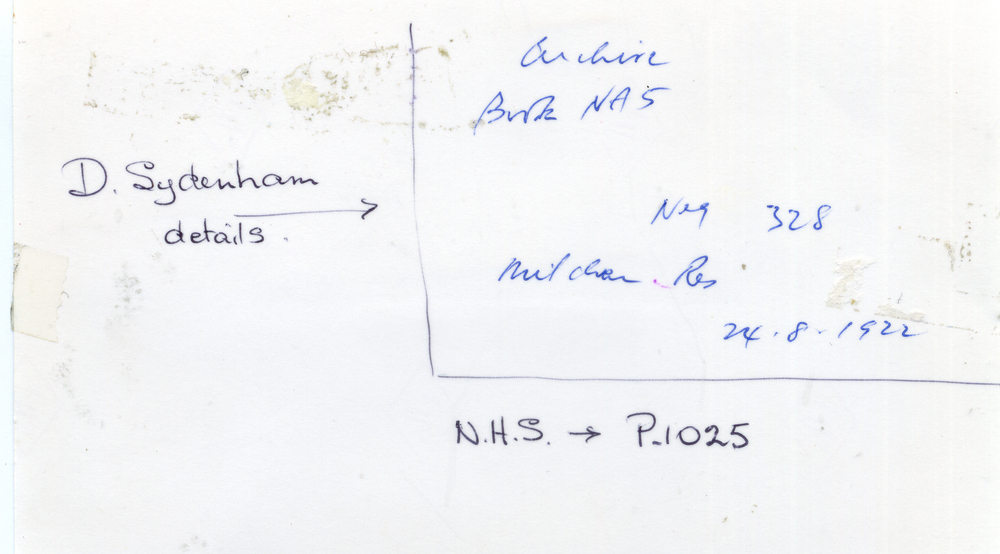 Archive
Book NA5
D. Sydenham
details.
Neg 328
Res
24.8.1922
N.H.S. → P.1025